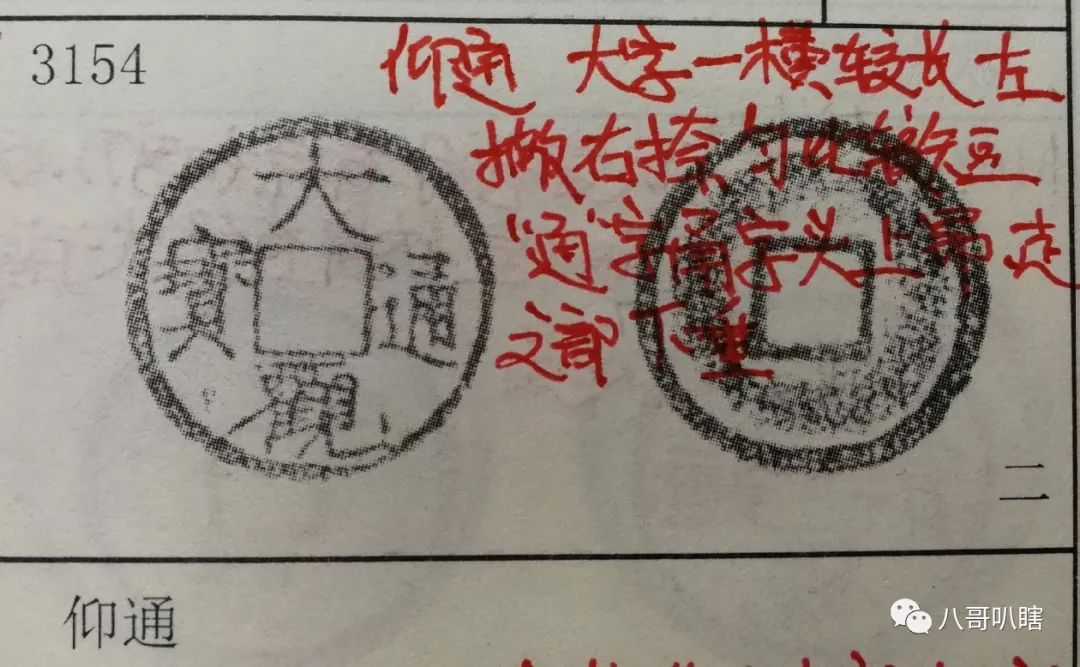 3154
仰通 大字一横较长 左
撇右捺匀比较短
“通”字甬字头上昂 走
之部下垂
大
寳 通
觀
二
仰通
八哥叭瞎